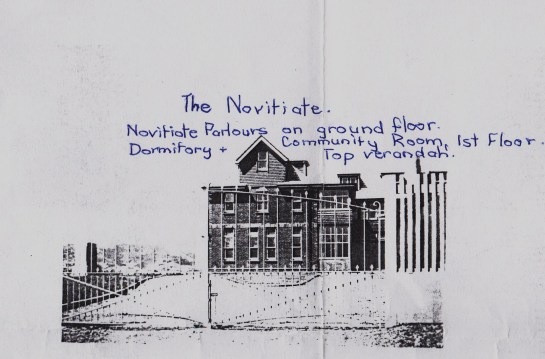 The Novitiate.
Novitiate Parlours on ground floor.
Dormitory + Community Room, 1st Floor.
Top verandah.